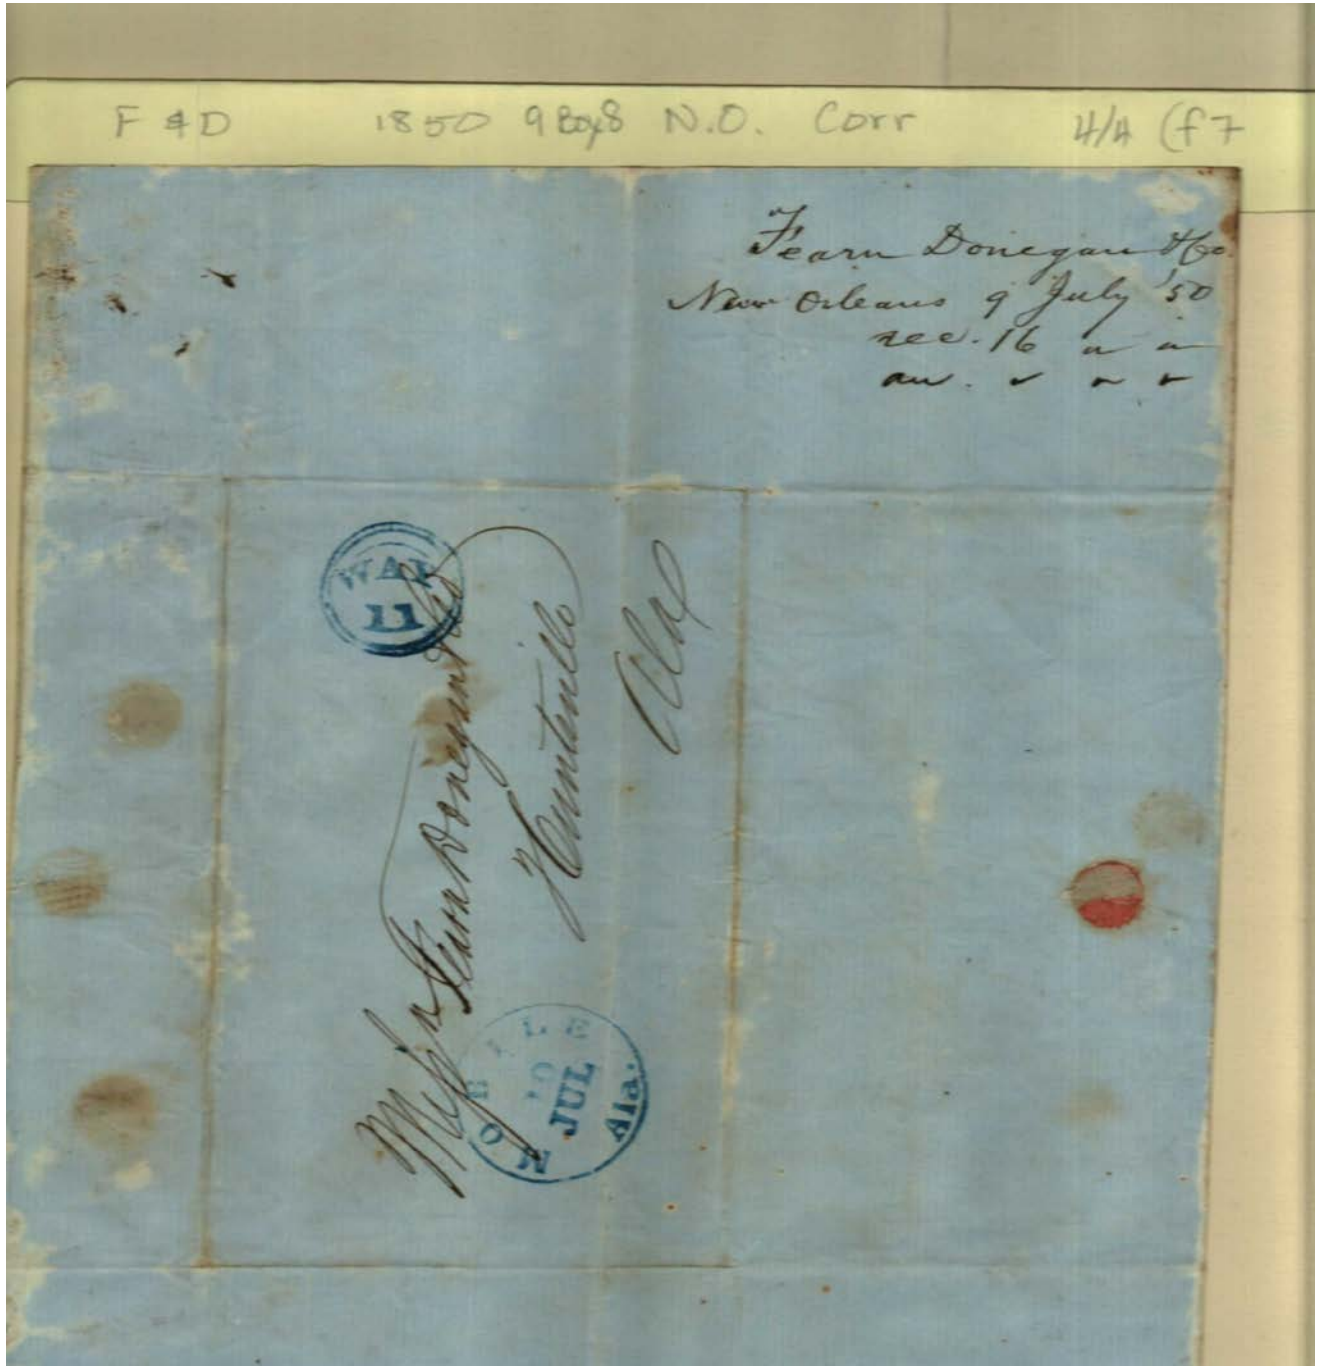 F & D 1850 9 Box 8 N.O. Corr 4/4 (f7
Fearn Donegan & Co.
New Orleans 9 July '50
rec. 16 " "
an. " " "
WAY
11
Messrs Fearn Donegan & Co
Huntsville
Ala
MOBILE
10
JUL
Ala.